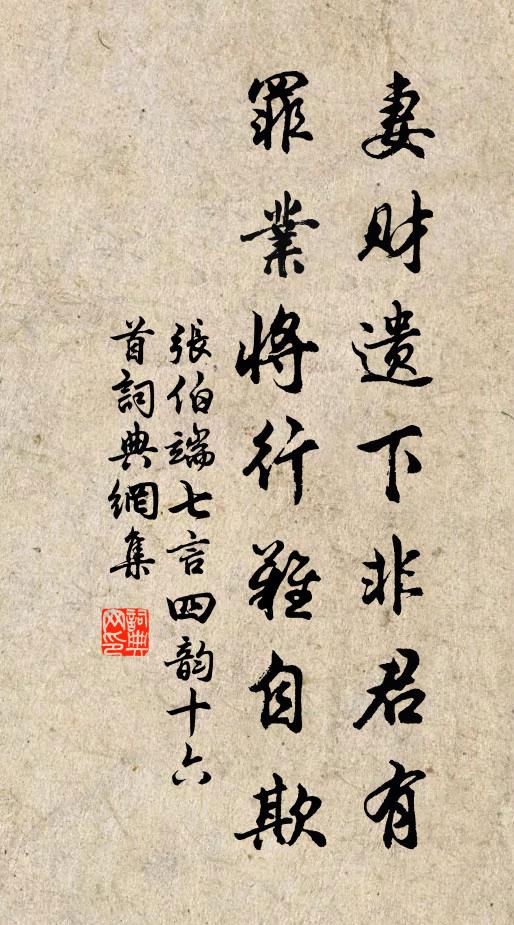 妻财遗下非君有
罪業将行難自欺
張伯端七言四韵十六
首詞典網集
詞典
网印